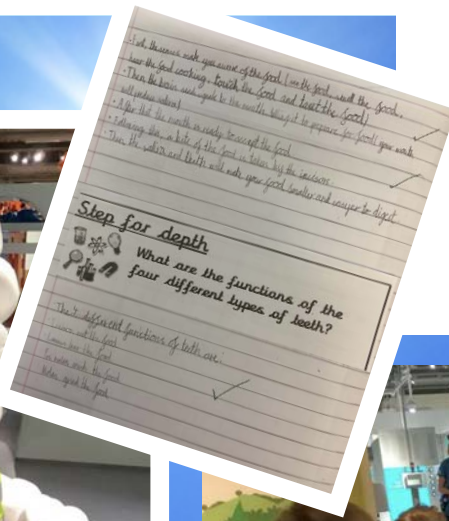 First, the senses make you aware of the food (see the food, smell the food,
hear the food cooking, touch the food and taste the food)
Then the brain sends signals to the mouth telling it to prepare for food (your mouth
will produce saliva)
After that the mouth is ready to accept the food
Following this a bite of the food is taken by the incisors
Then the saliva and teeth will make your food smaller and easyer to digest
Step for depth
What are the functions of the
four different types of teeth?
The 4 different functions of teeth are:
the food
the food
the food
Molars grind the food